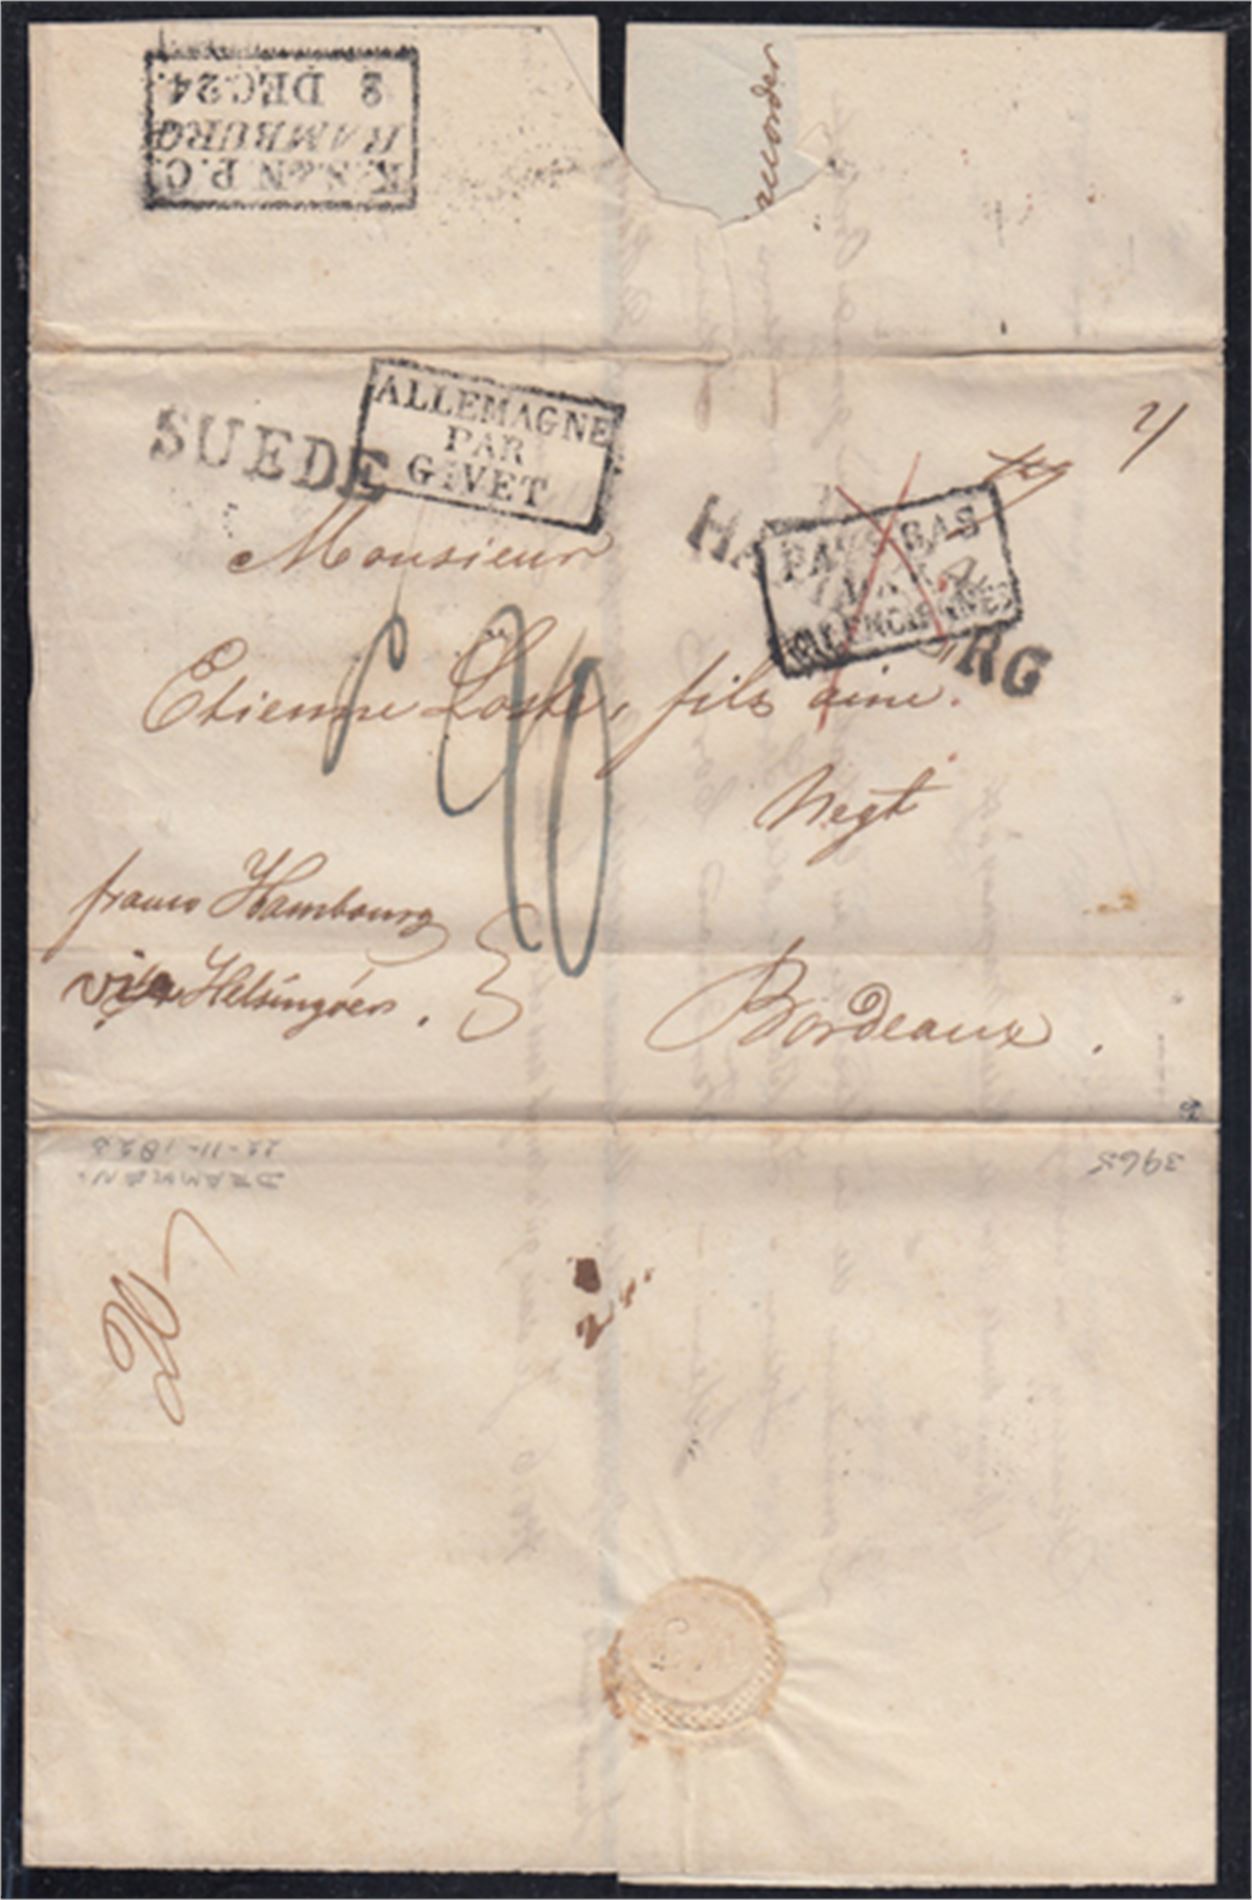 K.S.&N.P.C.
HAMBURG
2 DEC. 24.
recorder
SUEDE
ALLEMAGNE
PAR
GIVET
HAMBURG
PAYS BAS
PAR
VALENCIENNES
4
Monsieur
Etienne Loste, fils aine.
Negt
franco Hambourg
via Helsingöer.
Bordeaux.
DRAMMEN.
22-11-1823
3965